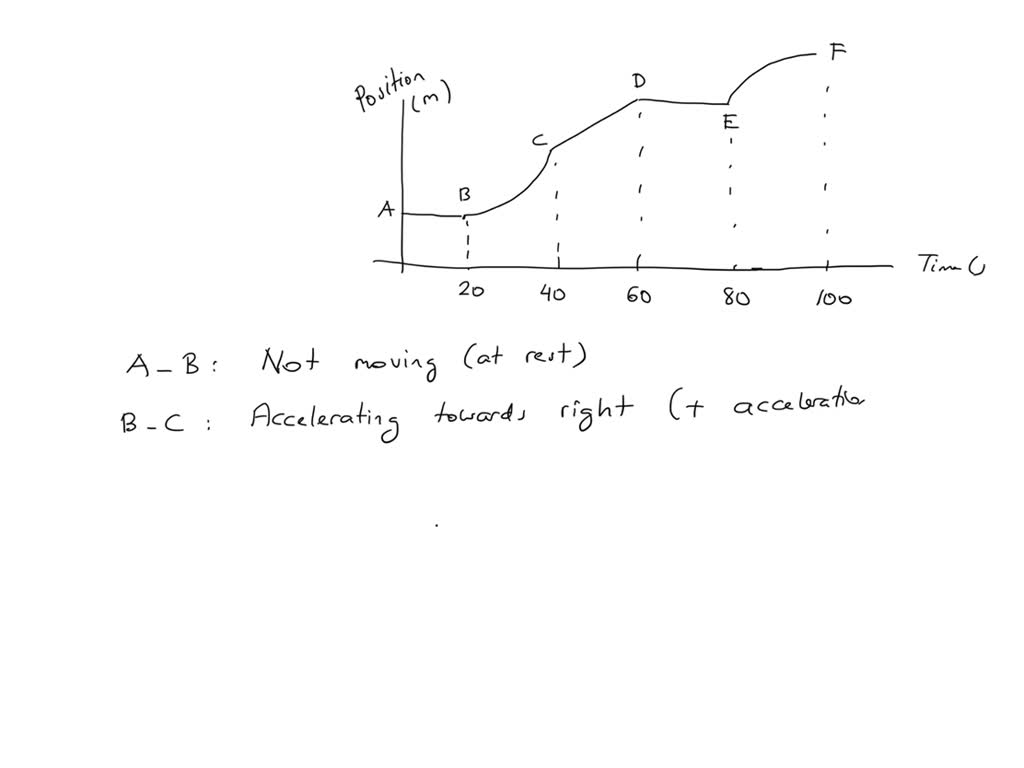 Position
(m)
F
D
E
C
B
A
20
40
60
80
100
Time (
A - B : Not moving (at rest)
B - C : Accelerating towards right (+ acceleration